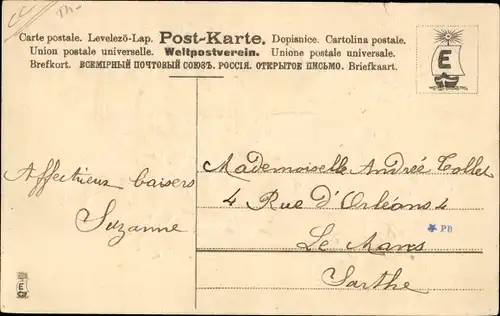 Th.
Carte postale. Levelező-Lap. Post-Karte. Dopisnice. Cartolina postale.
Union postale universelle. Weltpostverein. Unione postale universale.
Brefkort. ВСЕМІРНЫЙ ПОЧТОВЫЙ СОЮЗЪ. РОССІЯ. ОТКРЫТОЕ ПИСЬМО. Briefkaart.
E
Affectueux baisers
Suzanne
Mademoiselle Andrée Collet
4 Rue D'Orléans 4
Le Mans
PB
Sarthe
E